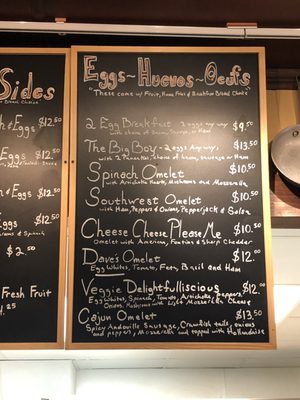 Sides
& Eggs $12.50
Eggs $12.50
& Eggs $12.50
Eggs $12.50
$2.50
Fresh Fruit
Eggs~Huevos~Oeufs
"These come w/ Fruit, Home Fries & Breakfast Bread Choice"
2 Egg Breakfast 2 eggs any way $9.50
with choice of bacon, Sausage, or Ham
The Big Boy- 2 eggs Any way, $13.50
with 2 Pancakes, choice of bacon, sausage or Ham
Spinach Omelet $10.50
with Artichoke Hearts, Mushrooms and Mozzarella
Southwest Omelet $10.50
with Ham, Peppers & Onions, Pepperjack & Salsa
Cheese Cheese Please Me $10.50
Omelet with American, Fontina & Sharp Cheddar
Dave's Omelet $12.00
Egg Whites, Tomato, Feta, Basil and Ham
Veggie Delightfulliscious $12.00
Egg Whites, Spinach, Tomato, Artichoke, peppers
Onions, Mushrooms with Light Mozzarella Cheese
Cajun Omelet $13.50
Spicy Andouille Sausage, Crawfish tails, onions
and peppers, Mozzarella and topped with Hollandaise